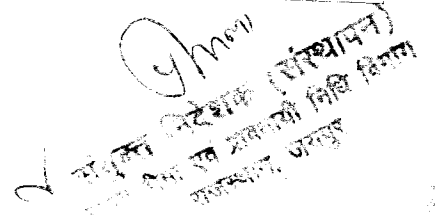 संयुक्त निदेशक (संस्थापन)
बीमा एवं प्रावधायी निधि विभाग
राजस्थान, जयपुर